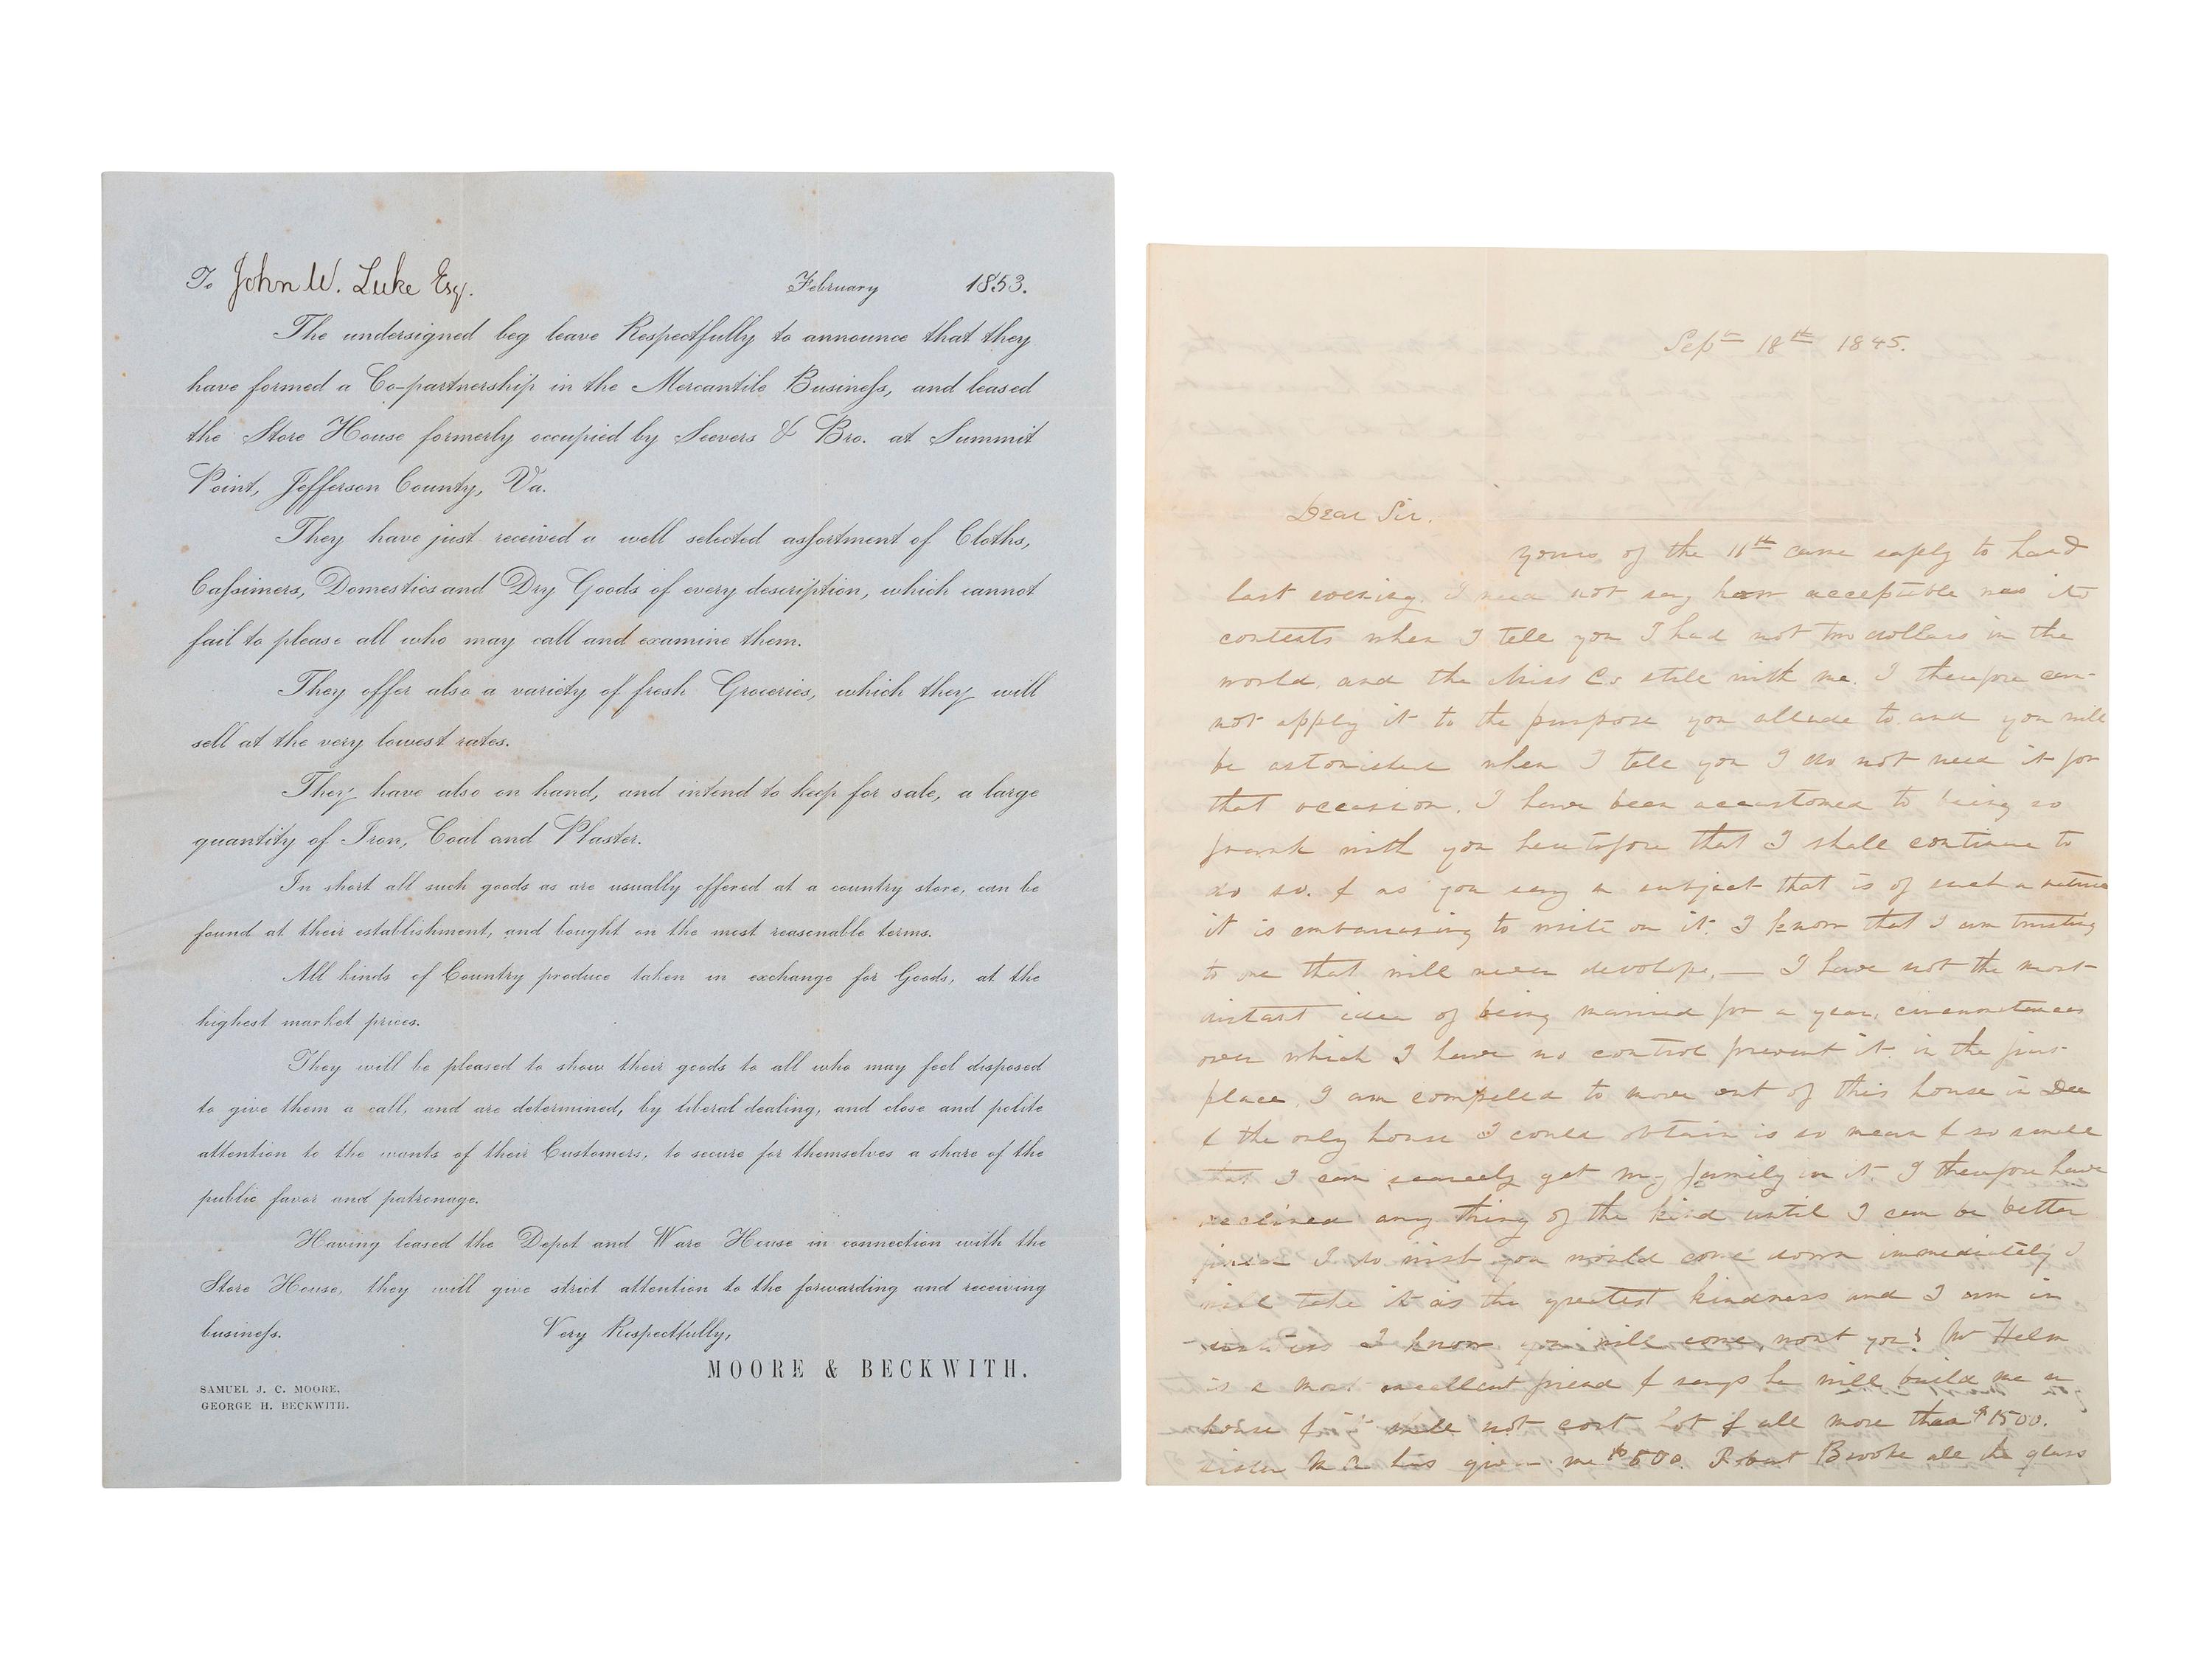 To John W. Luke Esq. February 1853.
The undersigned beg leave Respectfully to announce that they
have formed a Co-partnership in the Mercantile Busineſs, and leased
the Store House formerly occupied by Seevers & Bro. at Summit
Point, Jefferson County, Va.
They have just received a well selected aſsortment of Cloths,
Caſsimers, Domestics and Dry Goods of every description, which cannot
fail to please all who may call and examine them.
They offer also a variety of fresh Groceries, which they will
sell at the very lowest rates.
They have also on hand, and intend to keep for sale, a large
quantity of Iron, Coal and Plaster.
In short all such goods as are usually offered at a country store, can be
found at their establishment, and bought on the most reasonable terms.
All kinds of Country produce taken in exchange for Goods, at the
highest market prices.
They will be pleased to show their goods to all who may feel disposed
to give them a call, and are determined, by liberal dealing, and close and polite
attention to the wants of their Customers, to secure for themselves a share of the
public favor and patronage.
Having leased the Depot and Ware House in connection with the
Store House, they will give strict attention to the forwarding and receiving
busineſs. Very Respectfully,
MOORE & BECKWITH.
SAMUEL J. C. MOORE,
GEORGE H. BECKWITH.
Septh 18th 1845.
Dear Sir.
yours of the 11th came safely to hand
last evening. I need not say how acceptible was its
contents when I tell you I had not two dollars in the
world, and the Miss Cs still with me. I therefore can-
not apply it to the purpose you allude to and you will
be astonished when I tell you I do not need it for
that occasion. I have been accustomed to being so
frank with you heretofore that I shall continue to
do so. & as you say a subject that is of such a nature
it is embarrasing to write on it. I know that I am trusting
to one that will never devolope, — I have not the most
distant idea of being married for a year, circumstances
over which I have no control prevent it. in the first
place, I am compelled to move out of this house in Dec
& the only house I could obtain is so mean & so small
that I can scarcely get my family in it. I therefore have
declined any thing of the kind until I can be better
fixed I do wish you would come down immediately I
will take it as the greatest kindness and I am in
I know you will come, wont you? Mr Helm
is a most excellent friend & says he will build me a
house & it will not cost Lot & all more than $1500.
sister has given me $500. Robert Brooke all the glass